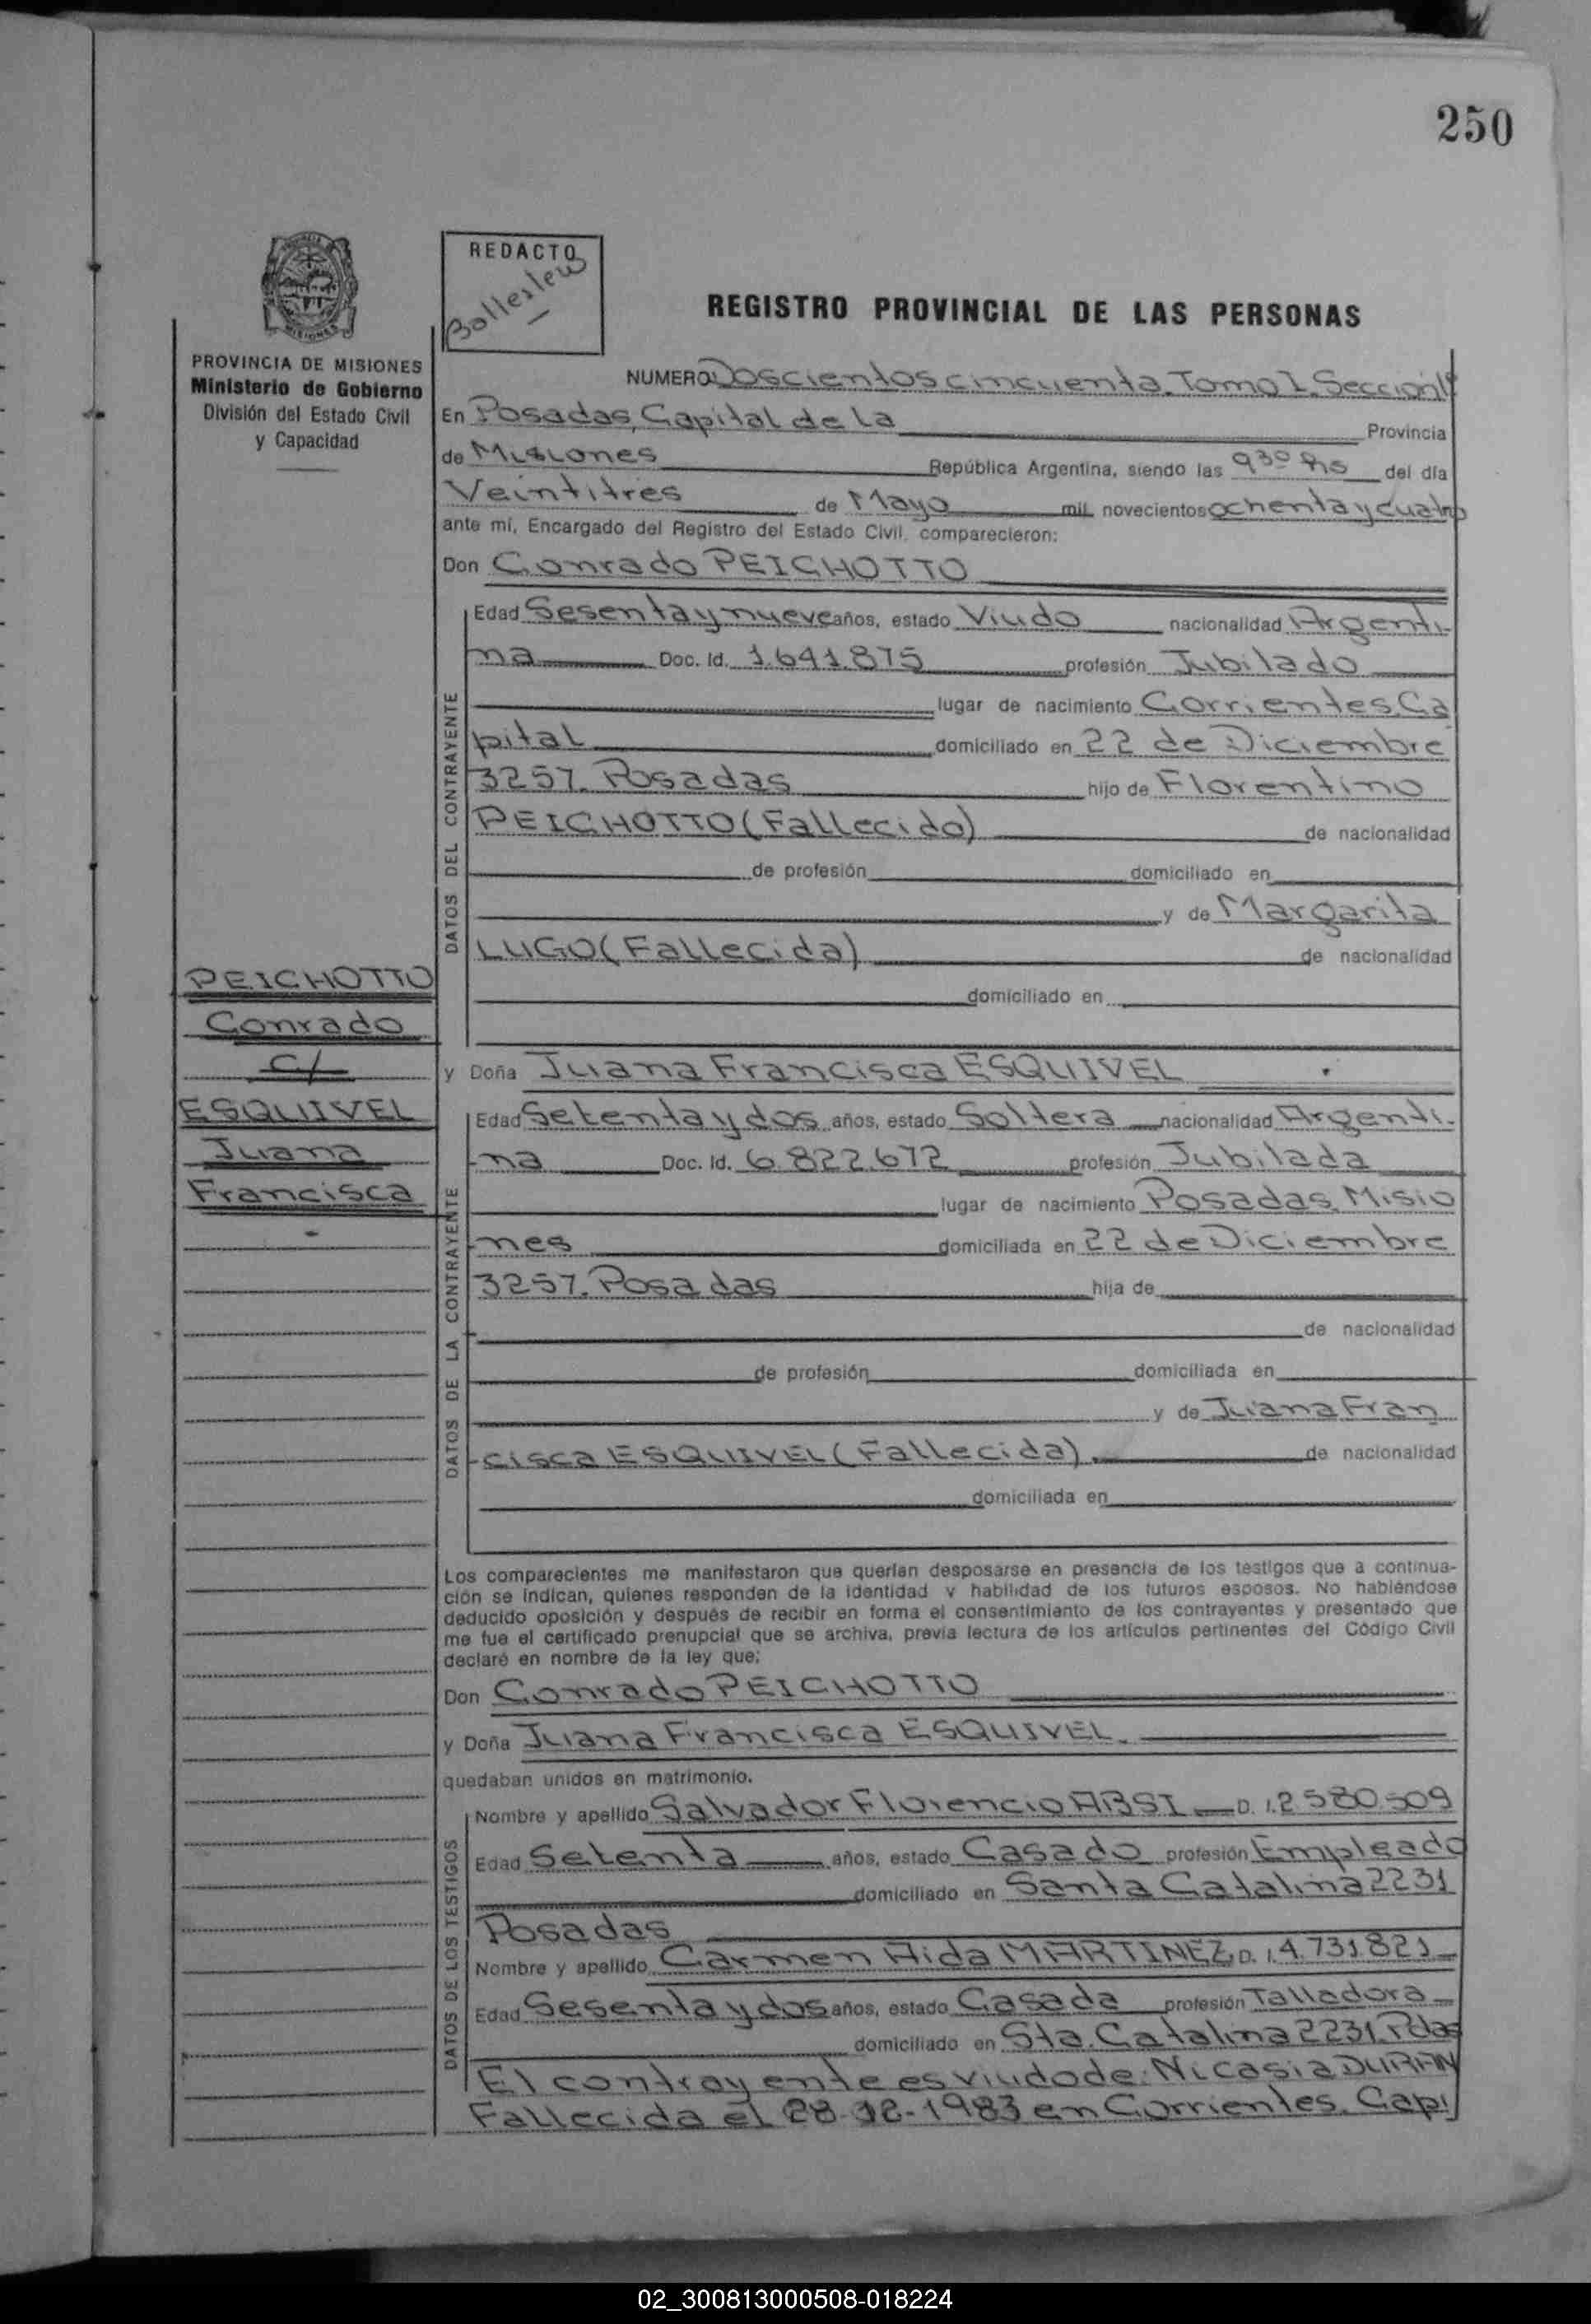 250
REDACTO
REGISTRO PROVINCIAL DE LAS PERSONAS
PROVINCIA DE MISIONES
Ministerio de Gobierno
División del Estado Civil
y Capacidad
NUMERO Doscientos cincuenta. Tomo I. Seccion 1ª
En Posadas, Capital de la Provincia
de Misiones República Argentina, siendo las 9 30 hs del día
Veintitres de Mayo mil novecientos ochenta y cuatro
ante mí, Encargado del Registro del Estado Civil, comparecieron:
Don Conrado PEICHOTTO
DATOS DEL CONTRAYENTE
Edad Sesenta y nueve años, estado Viudo nacionalidad Argenti-
na Doc. Id. 1.641.875 profesión Jubilado
lugar de nacimiento Corrientes, Ca
pital domiciliado en 22 de Diciembre
3257. Posadas hijo de Florentino
PEICHOTTO (Fallecido) de nacionalidad
de profesión domiciliado en
y de Margarita
LUGO (Fallecida) de nacionalidad
domiciliado en
PEICHOTTO
Conrado
c/
ESQUIVEL
Juana
Francisca
y Doña Juana Francisca ESQUIVEL
DATOS DE LA CONTRAYENTE
Edad Setenta y dos años, estado Soltera nacionalidad Argenti-
na Doc. Id. 6.822.672 profesión Jubilada
lugar de nacimiento Posadas, Misio
nes domiciliada en 22 de Diciembre
3257. Posadas hija de
de nacionalidad
de profesión domiciliada en
y de Juana Fran
cisca ESQUIVEL (Fallecida). de nacionalidad
domiciliada en
Los comparecientes me manifestaron que querían desposarse en presencia de los testigos que a continua-
ción se indican, quienes responden de la identidad y habilidad de los futuros esposos. No habiéndose
deducido oposición y después de recibir en forma el consentimiento de los contrayentes y presentado que
me fue el certificado prenupcial que se archiva, previa lectura de los artículos pertinentes del Código Civil
declaré en nombre de la ley que:
Don Conrado PEICHOTTO
y Doña Juana Francisca ESQUIVEL.
quedaban unidos en matrimonio.
DATOS DE LOS TESTIGOS
Nombre y apellido Salvador Florencio ABSI D. I. 2.580.509
Edad Setenta años, estado Casado profesión Empleado
domiciliado en Santa Catalina 2231
Posadas
Nombre y apellido Carmen Aida MARTINEZ D. I. 4.731.821
Edad Sesenta y dos años, estado Casada profesión Talladora
domiciliado en Sta. Catalina 2231. Pdas
El contrayente es viudo de: Nicasia DURAN
Fallecida el 28-12-1983 en Corrientes. Capi
02_300813000508-018224